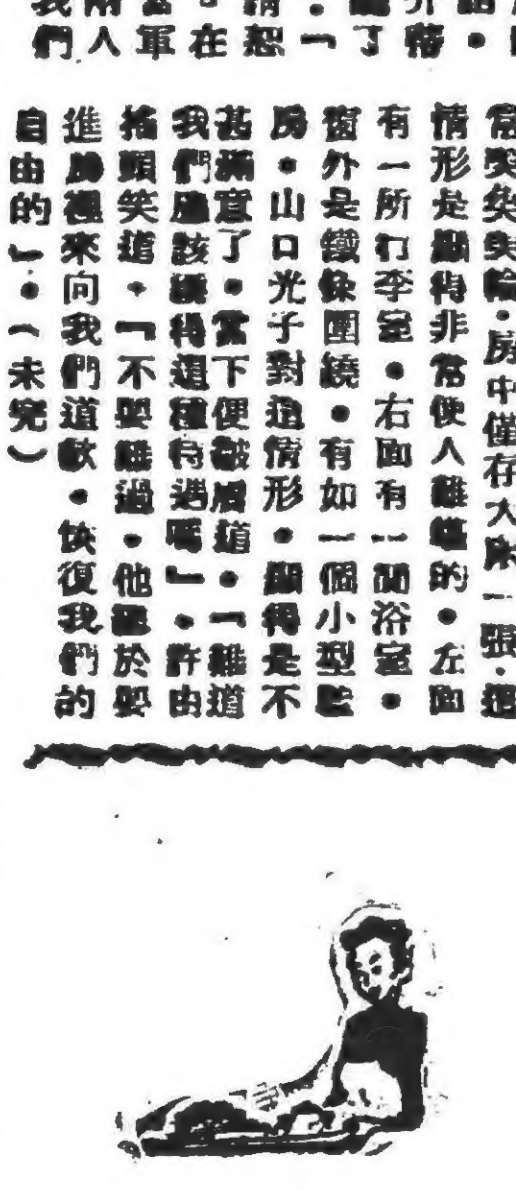 了
。『
請恕
。在
軍
兩人
我們
房中僅存大床一張。這
情形是顯得非常使人難堪的。左面
有一所行李室。右面有一間浴室。
窗外是鐵條圍繞。有如一個小型監
房。山口光子對這情形。顯得是不
甚滿意了。當下便皺眉道。『難道
我們應該獲得這種待遇嗎』。許由
搖頭笑道。『不要難過。他終於要
進房裡來向我們道歉。恢復我們的
自由的』。(未完)